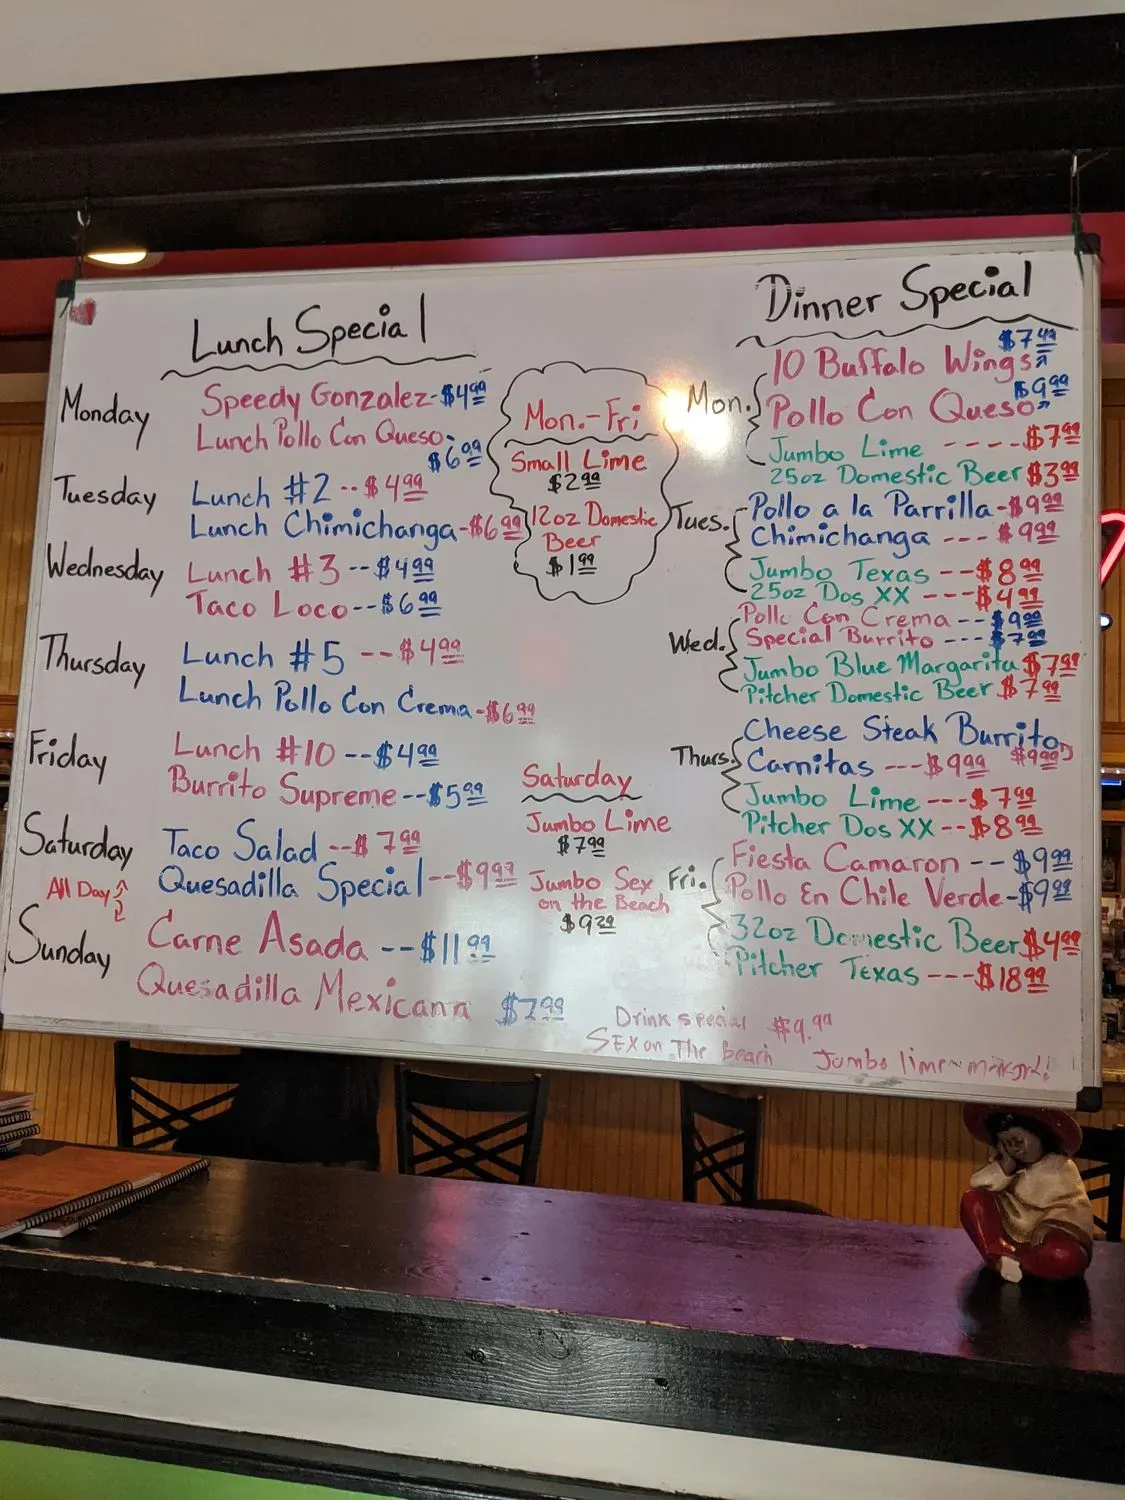 Lunch Special
Monday
Speedy Gonzalez-$4.99
Lunch Pollo Con Queso-
$6.99
Tuesday
Lunch #2--$4.99
Lunch Chimichanga-$6.99
Wednesday
Lunch #3--$4.99
Taco Loco--$6.99
Thursday
Lunch #5--$4.99
Lunch Pollo Con Crema-$6.99
Friday
Lunch #10--$4.99
Burrito Supreme--$5.99
Saturday
Taco Salad--$7.99
Quesadilla Special--$9.99
All Day
Sunday
Carne Asada--$11.99
Quesadilla Mexicana $7.99
Mon.-Fri
Small Lime
$2.99
12oz Domestic
Beer
$1.99
Saturday
Jumbo Lime
$7.99
Jumbo Sex
on the Beach
$9.29
Drink special $9.99
SEX on The beach Jumbo lime
Dinner Special
Mon.
$7.49
10 Buffalo Wings
$9.99
Pollo Con Queso
Jumbo Lime ----$7.99
25oz Domestic Beer $3.99
Tues.
Pollo a la Parrilla-$9.99
Chimichanga ---$9.99
Jumbo Texas --$8.99
25oz Dos XX ---$4.99
Wed.
Pollo Con Crema--$9.99
Special Burrito ---$7.99
Jumbo Blue Margarita $7.99
Pitcher Domestic Beer $7.99
Thurs.
Cheese Steak Burrito
$9.99
Carnitas ---$9.99
Jumbo Lime ---$7.99
Pitcher Dos XX --$8.99
Fri.
Fiesta Camaron--$9.99
Pollo En Chile Verde-$9.99
32oz Domestic Beer $4.99
Pitcher Texas ---$18.99